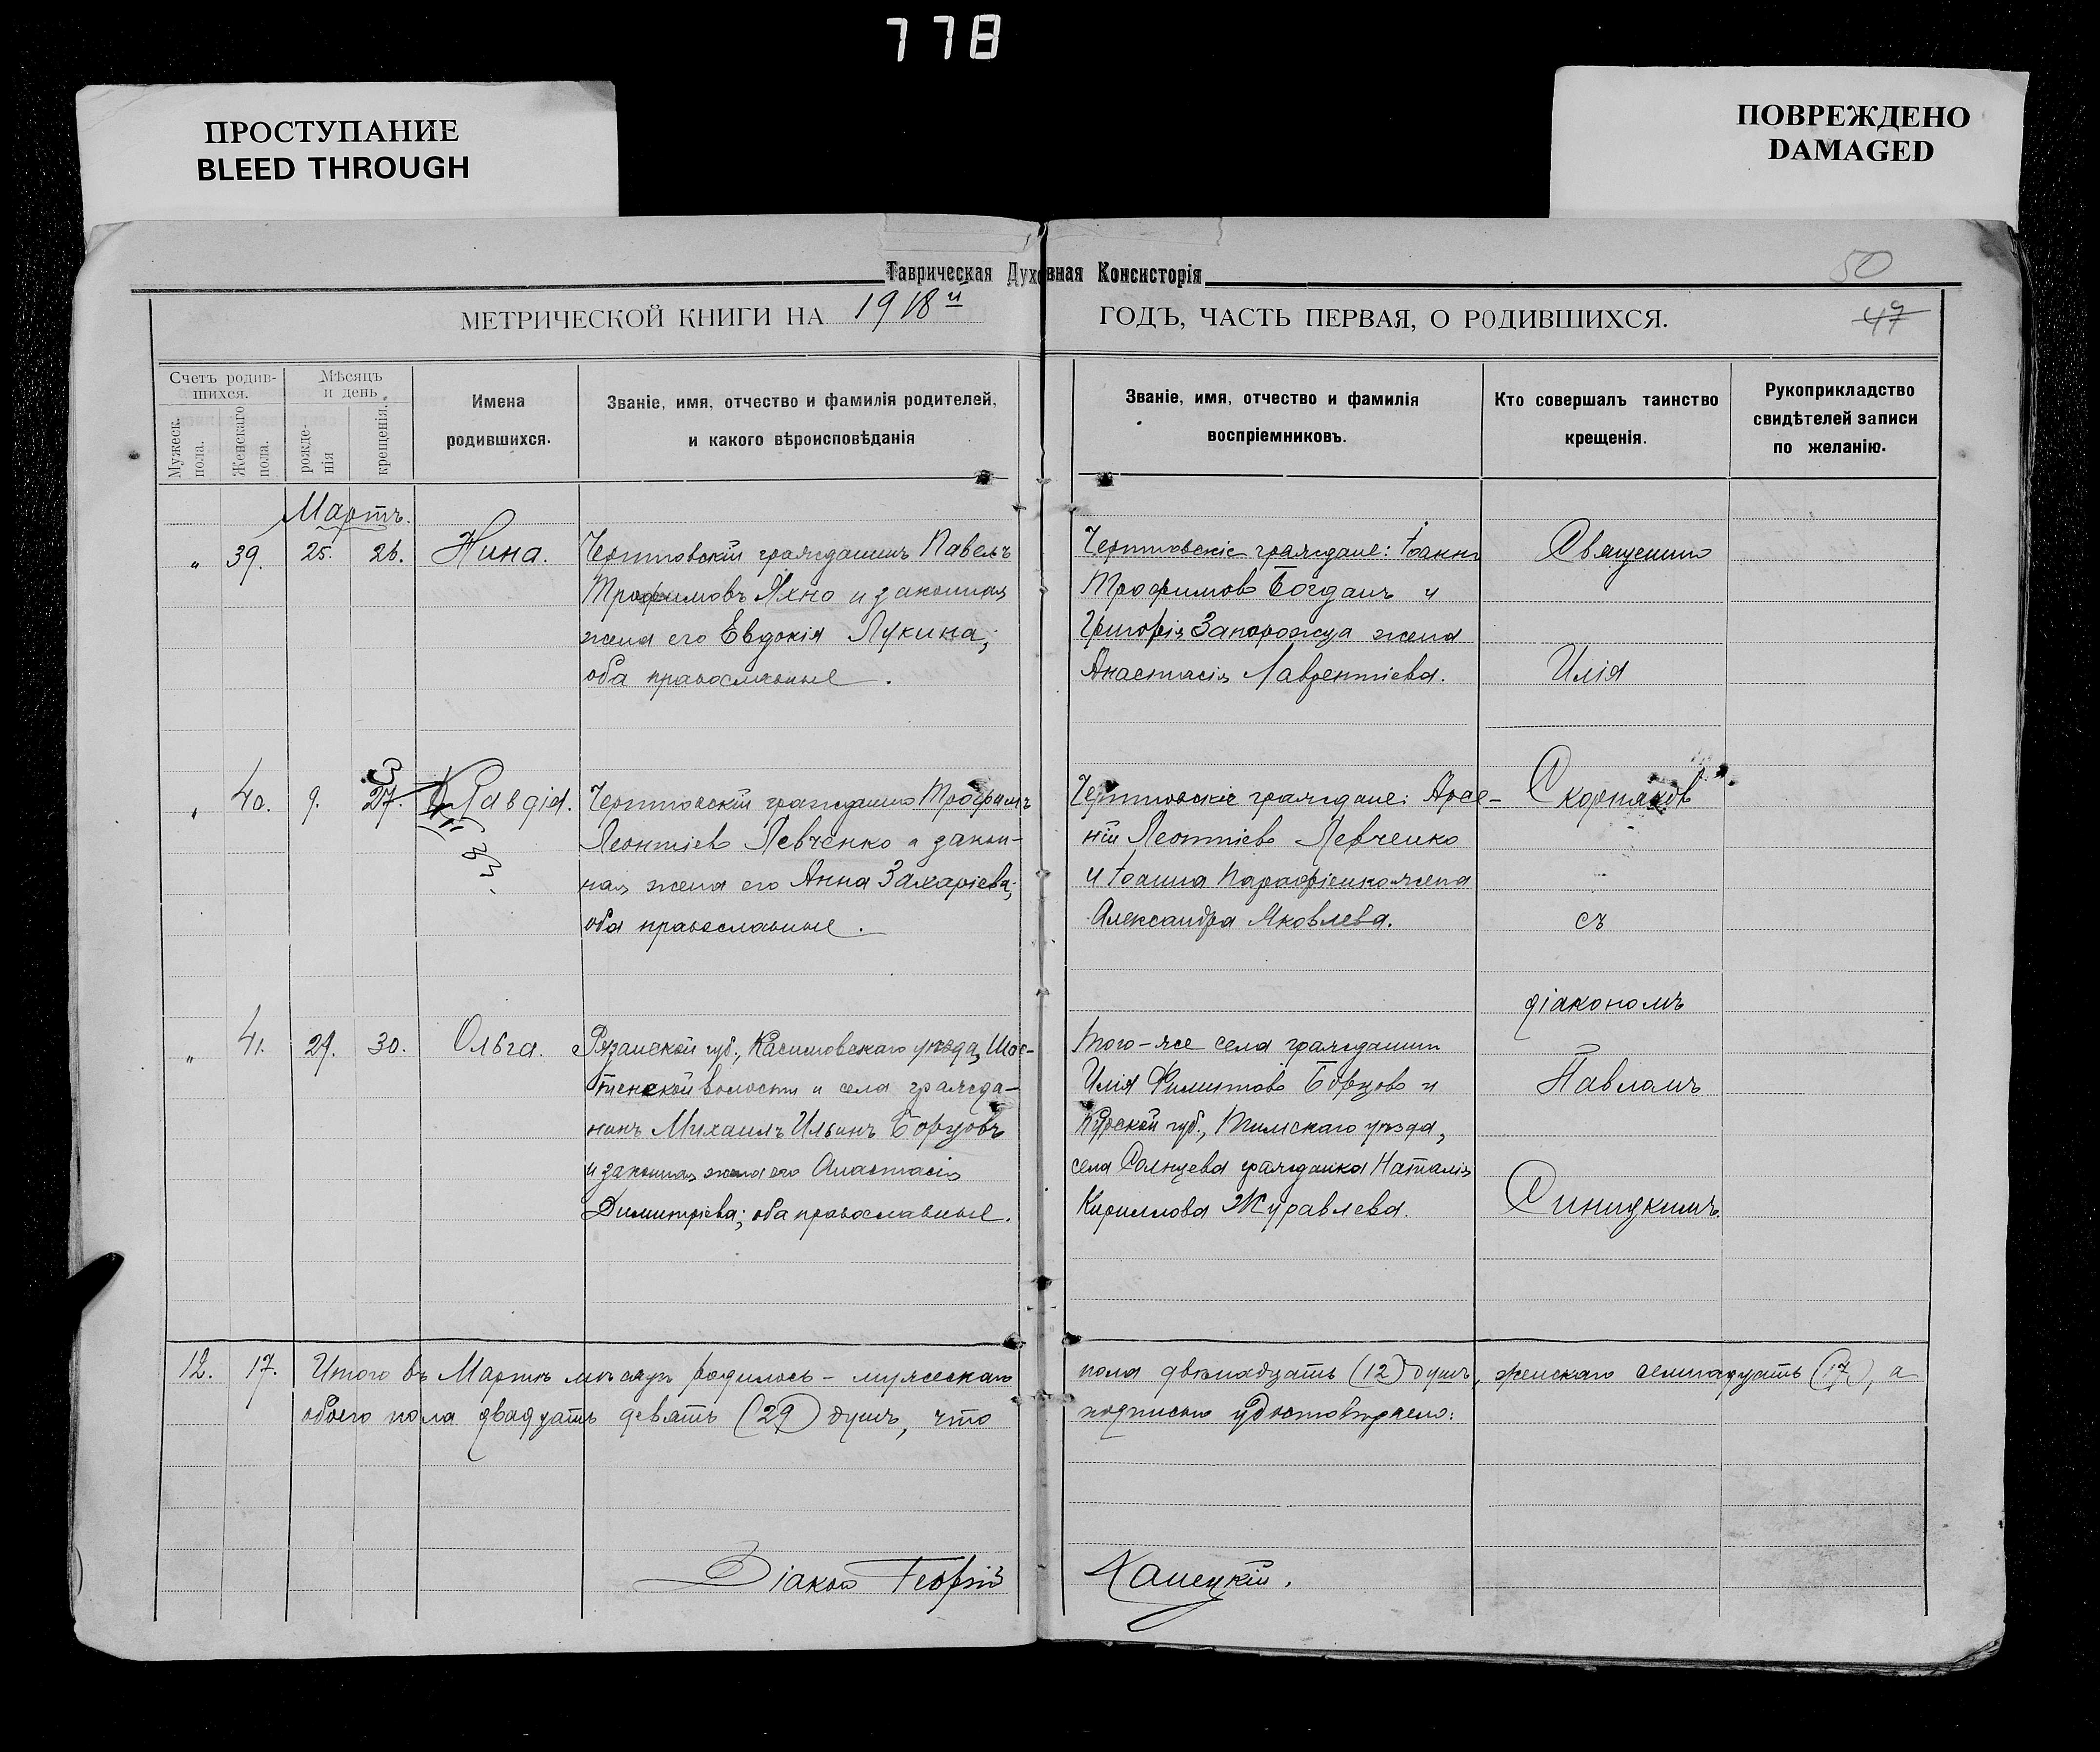 778
ПРОСТУПАНИЕ
BLEED THROUGH
ПОВРЕЖДЕНО
DAMAGED
Таврическая Духовная Консисторія
50
МЕТРИЧЕСКОЙ КНИГИ НА 1918й ГОДЪ, ЧАСТЬ ПЕРВАЯ, О РОДИВШИХСЯ.
47
Счетъ родив-
шихся.
Мужеск.
пола.
Женскаго
пола.
Мѣсяцъ
и день
рожде-
нія
крещенія.
Имена
родившихся.
Званіе, имя, отчество и фамилія родителей,
и какого вѣроисповѣданія
Званіе, имя, отчество и фамилія
воспріемниковъ.
Кто совершалъ таинство
крещенія.
Рукоприкладство
свидѣтелей записи
по желанію.
Мартъ.
„ 39. 25. 26. Нина.
гражданинъ Павелъ
Трофимовъ Яхно и законная
жена его Евдокія Лукина;
оба православные.
граждане: Іоаннъ
Трофимовъ Богданъ и
Григорія Запорожца жена
Анастасія Лаврентіева.
„ 40. 9. 27. Клавдія.
3
гражданинъ Трофимъ
Леонтіевъ Левченко и закон-
ная жена его Анна Захаріева;
оба православные.
граждане: Арсе-
ній Леонтіевъ Левченко
и Іоанна жена
Александра Яковлева.
„ 41. 29. 30. Ольга.
Рязанской губ., Касимовскаго уѣзда,
волости и села гражда-
нинъ Михаилъ Ильинъ Борцовъ
и законная жена его Анастасія
Димитріева; оба православные.
Того-же села гражданинъ
Илія Борцовъ и
Курской губ., Тимскаго уѣзда,
села Солнцева гражданка Наталія
Кириллова Журавлева.
Священникъ
Илія
Скорняковъ
съ
діакономъ
Павломъ
Синицкимъ.
12. 17. Итого въ Мартѣ мѣсяцѣ родилось - мужескаго пола двѣнадцать (12) душъ, женскаго семнадцать (17), а
обоего пола двадцать девять (29) душъ, что подписью удостовѣряемъ:
Діаконъ Георгій